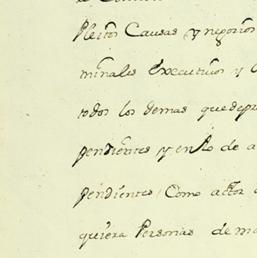 Pleitos Causas y negocios
minales executivos y
todos los demas que depe
pendientes y en lo de a
pendientes, Como actor
quiera Personas de ma